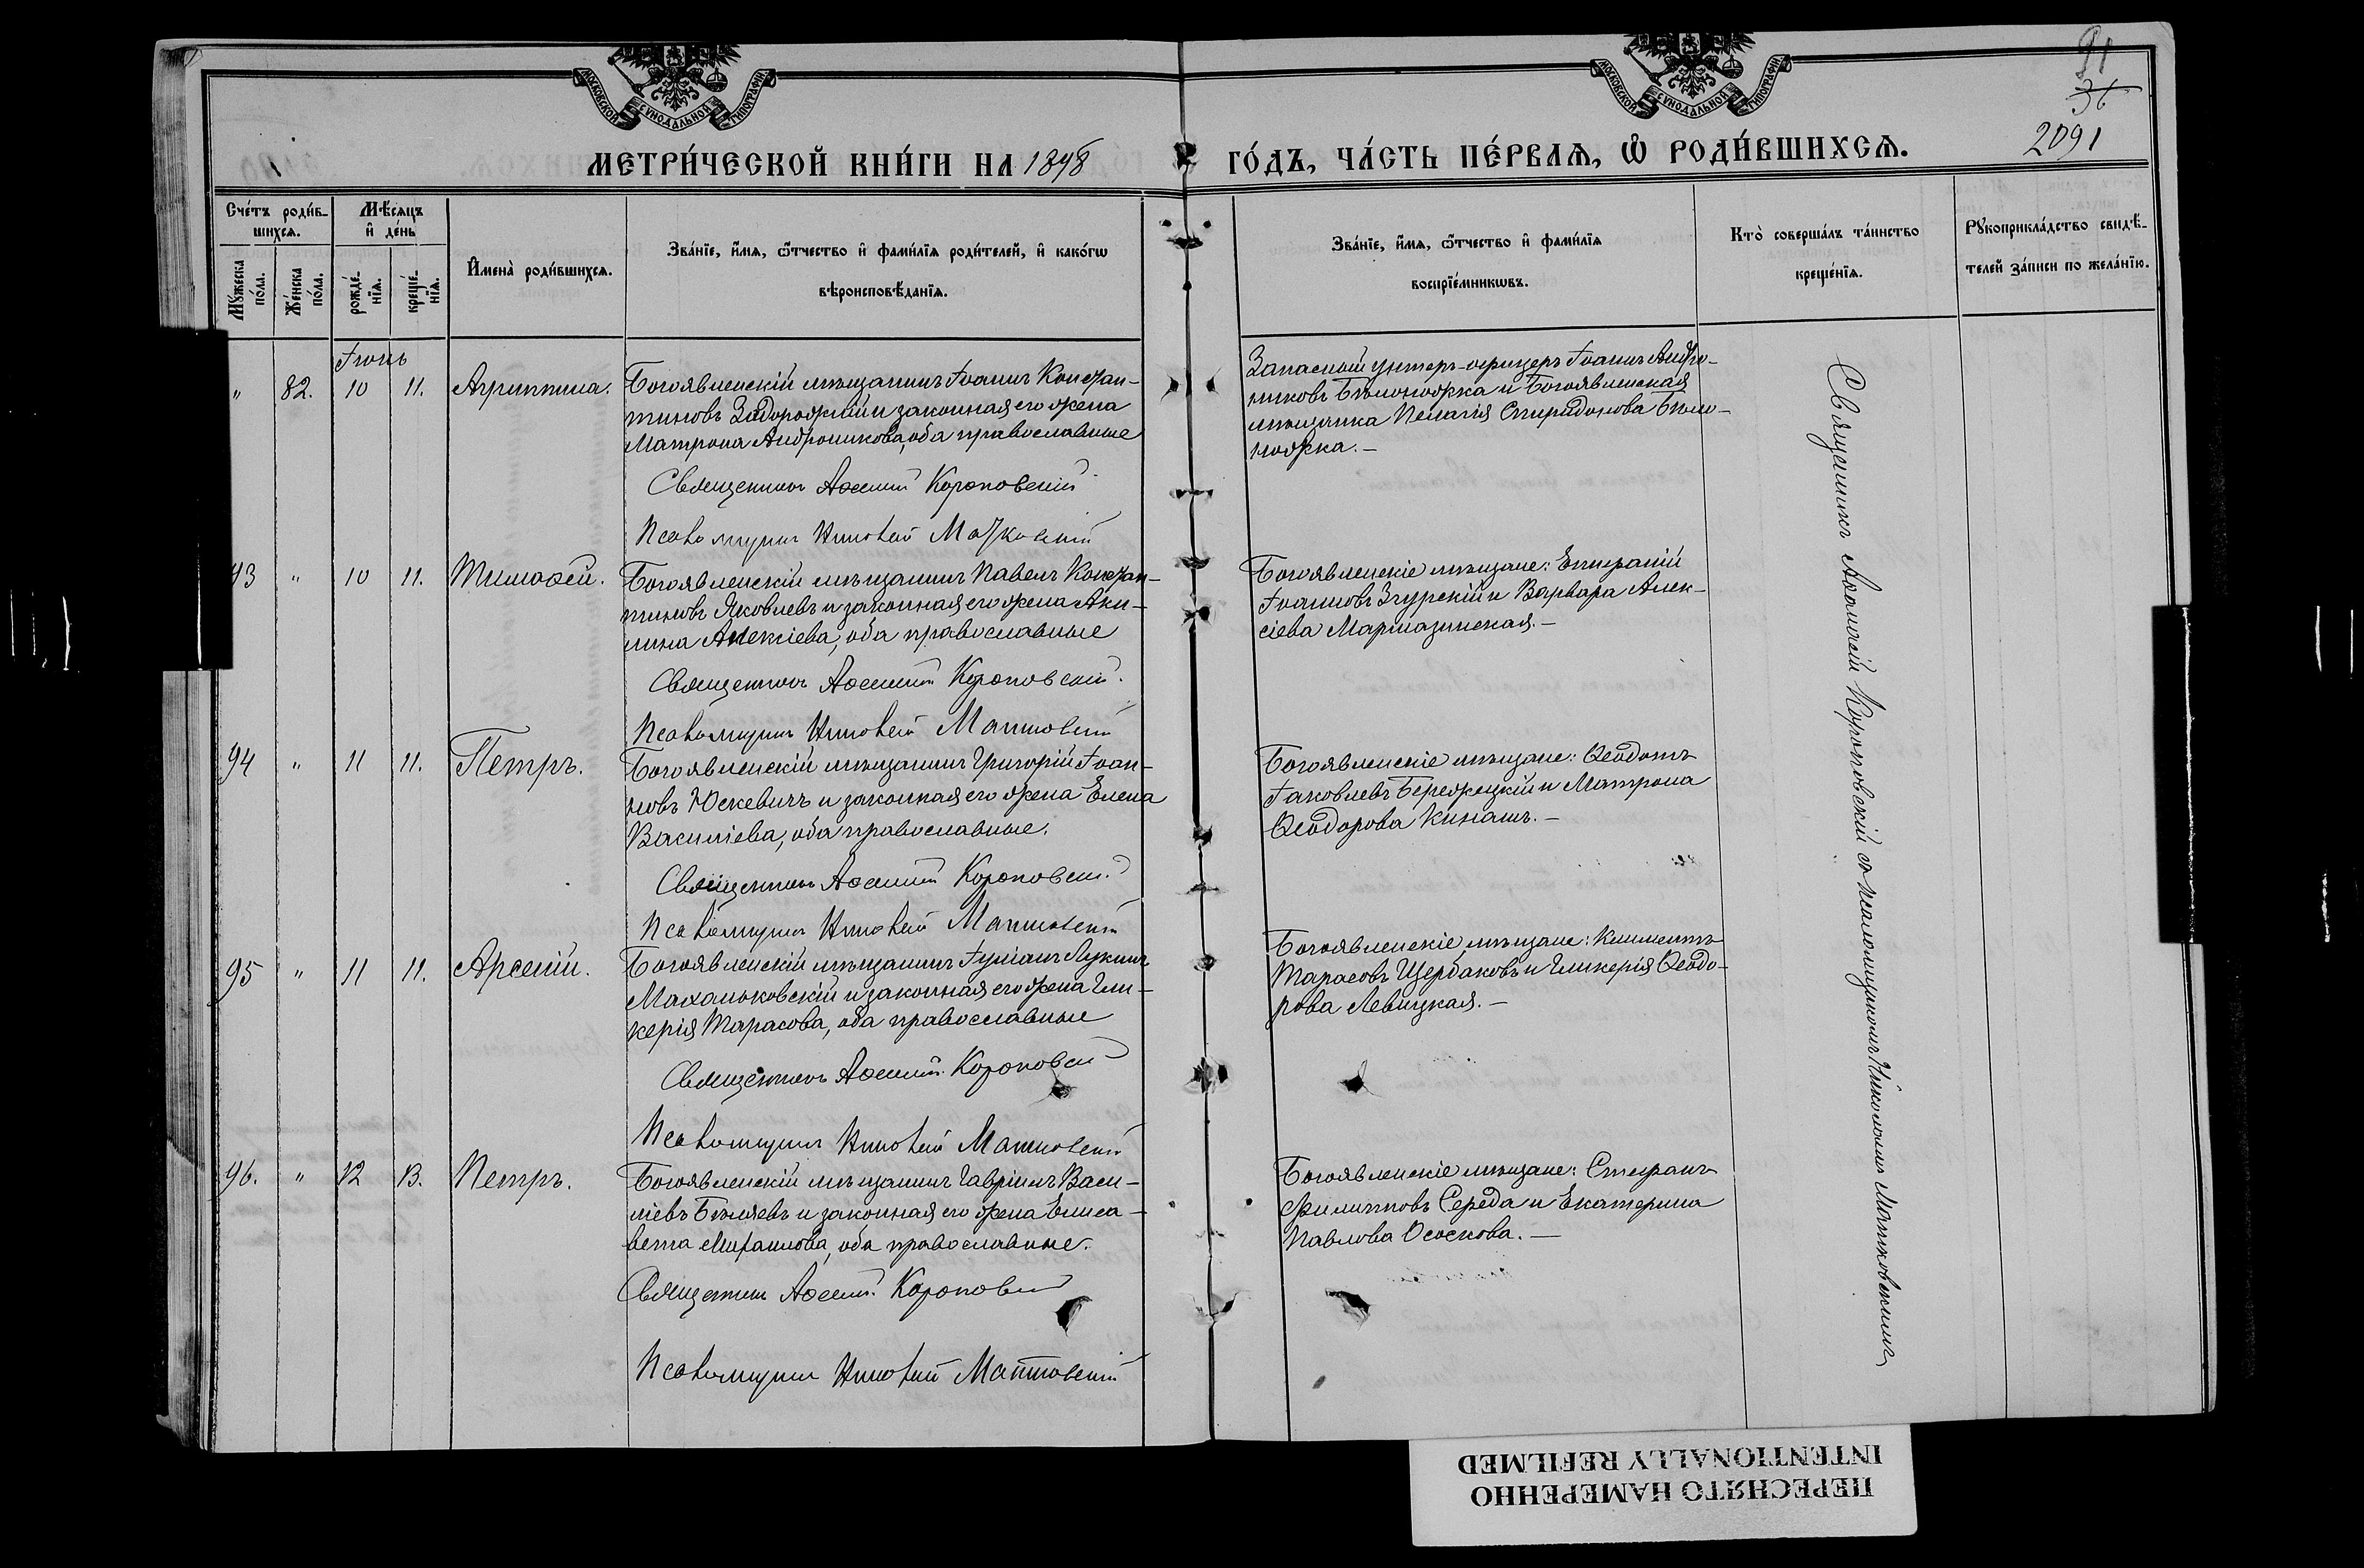 МОСКОВСКОЙ СѴНОДАЛЬНОЙ ТИПОГРАФІИ
МОСКОВСКОЙ СѴНОДАЛЬНОЙ ТИПОГРАФІИ
91
36
2091
МЕТРИ́ЧЕСКОЙ КНИ́ГИ НА 1898 ГО́ДЪ, ЧА́СТЬ ПЕ́РВАѦ, Ѡ҆ РОДИ́ВШИХСѦ.
Сче́тъ роди́в-
шихсѧ.
Мꙋ́жеска по́ла.
Же́нска по́ла.
Мѣ́сѧцъ
и҆ де́нь
рожде́-
нїѧ.
креще́-
нїѧ.
И҆мена̀ роди́вшихсѧ.
Зва́нїе, и҆́мѧ, ѻ҆́тчество и҆ фами́лїѧ роди́телей, и҆ како́гѡ
вѣроисповѣ́данїѧ.
Зва́нїе, и҆́мѧ, ѻ҆́тчество и҆ фами́лїѧ
воспрїе́мникѡвъ.
Кто̀ соверша́лъ та́инство
креще́нїѧ.
Рꙋкоприкла́дство свидѣ́-
телей за́писи по жела́нїю.
Іюнь
" 82. 10 11. Агриппина.
Богоявленскій мѣщанинъ Іоаннъ Констан-
тиновъ Задорожній и законная его жена
Матрона Андроникова, оба православные
Священникъ Аѳанасій Короповскій
Псаломщикъ Николай Матковскій
Запасный унтеръ-офицеръ Іоаннъ Андро-
никовъ Бѣлоножка и Богоявленская
мѣщанка Пелагія Спиридонова Бѣло-
ножка.—
93 " 10 11. Тимоѳей.
Богоявленскій мѣщанинъ Павелъ Констан-
тиновъ Яковлевъ и законная его жена Аки-
лина Алексіева, оба православные
Священникъ Аѳанасій Короповскій.
Псаломщикъ Николай Матковскій
Богоявленскіе мѣщане: Епифаній
Іоанновъ Згурскій и Варвара Алек-
сіева Мармазинская.—
94 " 11 11. Петръ.
Богоявленскій мѣщанинъ Григорій Іоан-
новъ Юскевичъ и законная его жена Елена
Василіева, оба православные.
Священникъ Аѳанасій Короповскій
Псаломщикъ Николай Матковскій
Богоявленскіе мѣщане: Ѳеодотъ
Іаковлевъ Бережецкій и Матрона
Ѳеодорова Кинашъ.—
95 " 11 11. Арсеній.
Богоявленскій мѣщанинъ Іуліанъ Лукинъ
Маханьковскій и законная его жена Гли-
керія Тарасова, оба православные
Священникъ Аѳанасій Короповскій
Псаломщикъ Николай Матковскій
Богоявленскіе мѣщане: Климентъ
Тарасовъ Щербаковъ и Гликерія Ѳеодо-
рова Левицкая.—
96. " 12 13. Петръ.
Богоявленскій мѣщанинъ Гавріилъ Васи-
ліевъ Бѣляевъ и законная его жена Елиса-
вета Михаилова, оба православные.
Священникъ Аѳанасій Короповскій
Псаломщикъ Николай Матковскій
Богоявленскіе мѣщане: Стефанъ
Филипповъ Середа и Екатерина
Павлова Ососкова.—
Священникъ Аѳанасій Короповскій съ псаломщикомъ Николаемъ Матковскимъ
ПЕРЕСНЯТО НАМЕРЕННО
INTENTIONALLY REFILMED